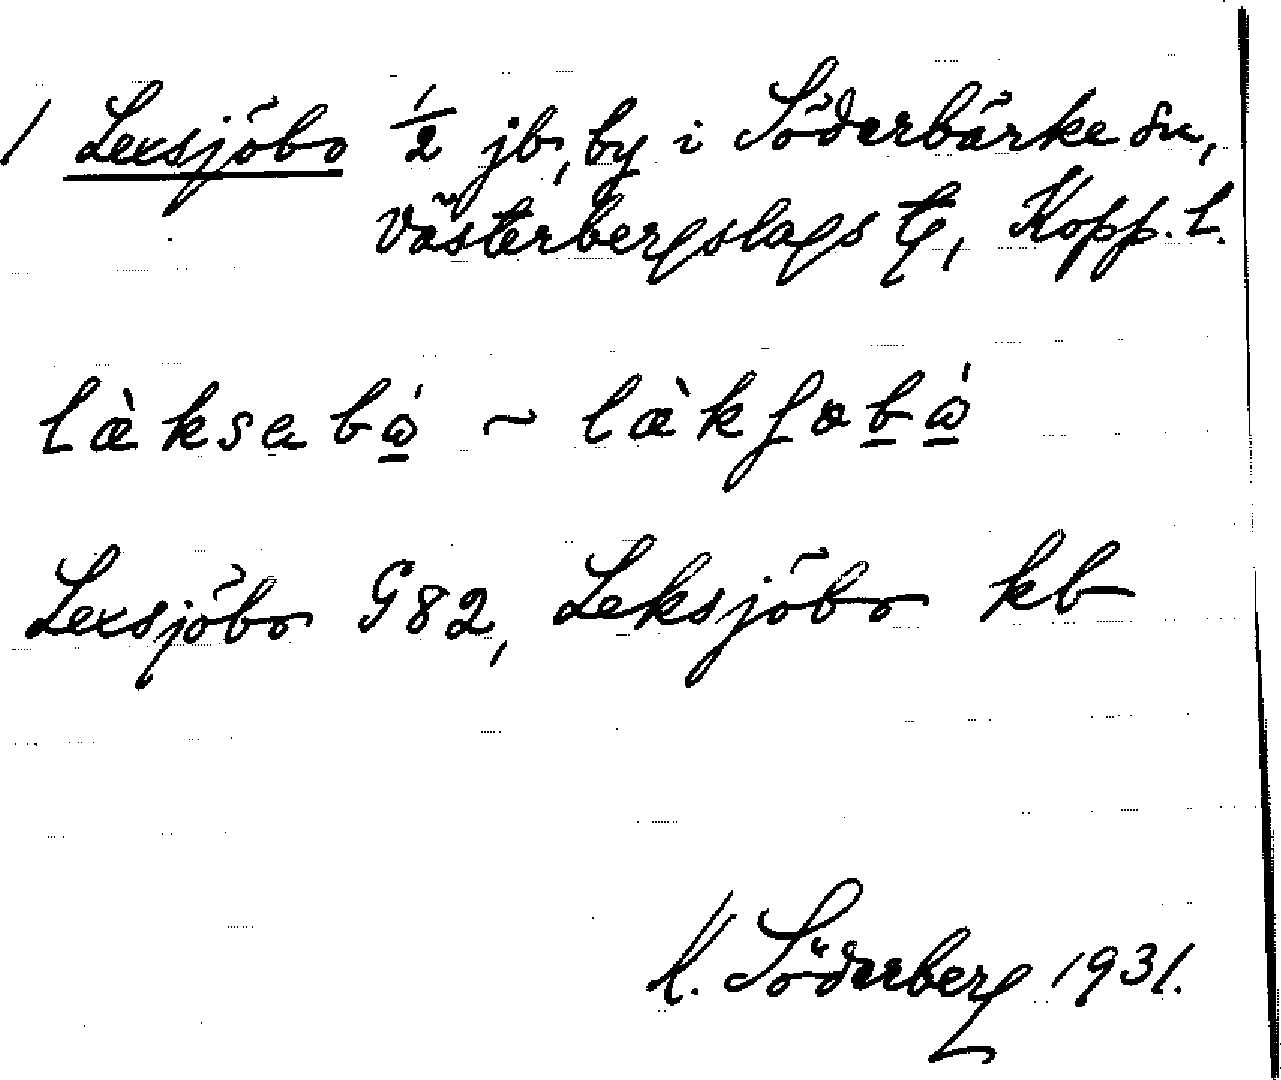 1 Lexsjöbo 1/2 jb, by i Söderbärke sn,
Västerbergslags tg, Kopp. l.
lὰksabώ ~ lὰkʃəbώ
Lexsjöbo G82, Leksjöbo kb
K. Söderberg 1931.